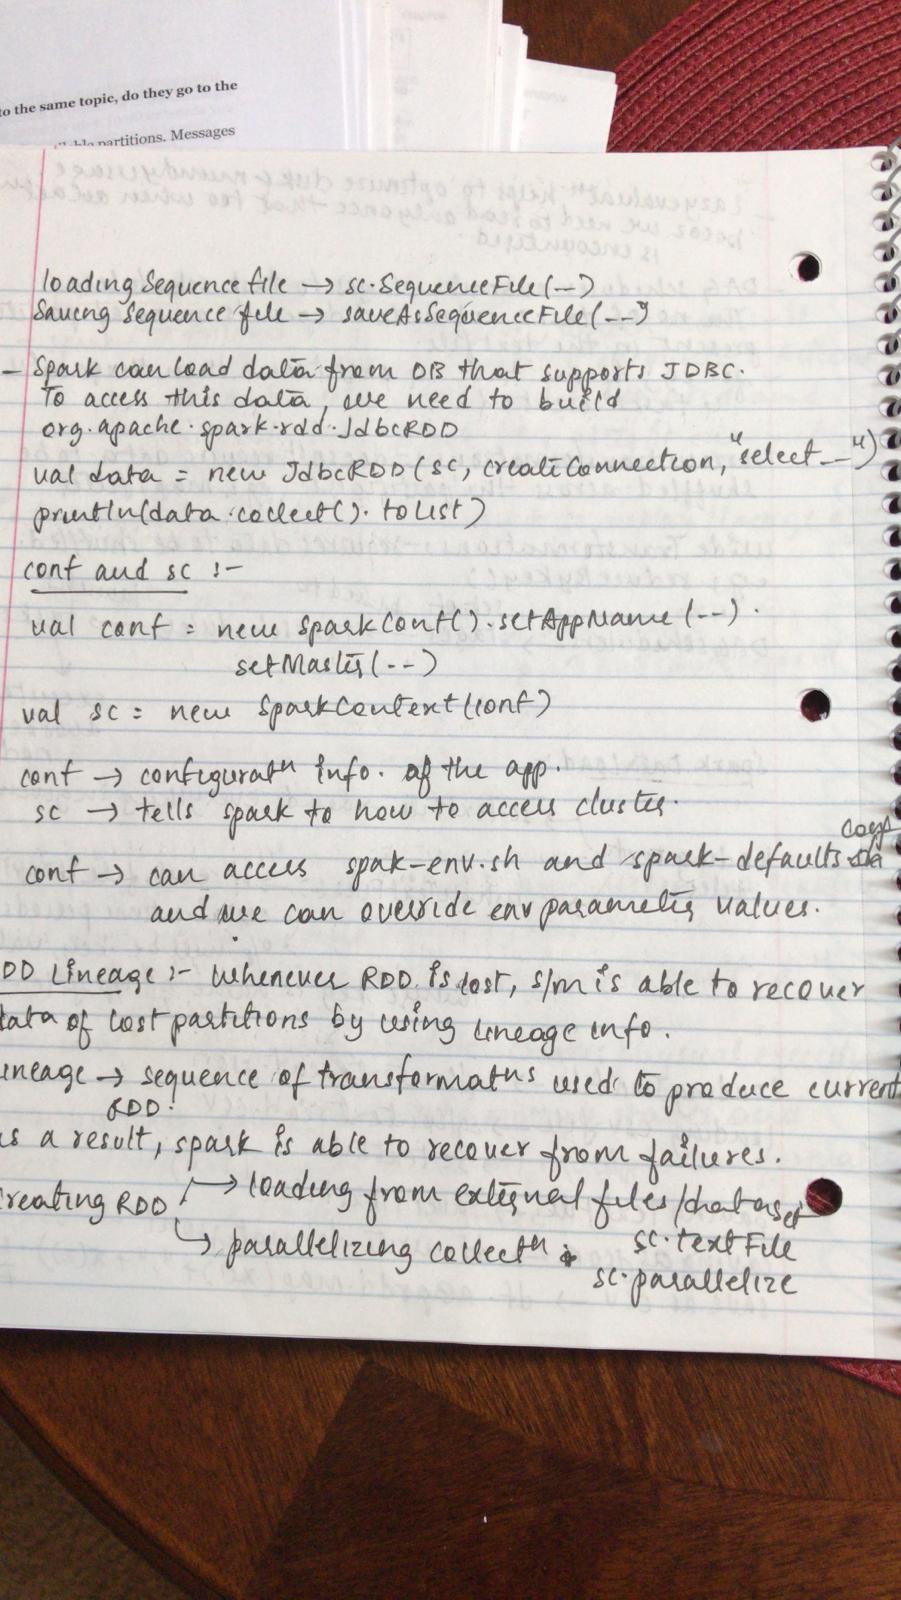 to the same topic, do they go to the
partitions. Messages
loading Sequence file → sc.SequenceFile(--)
Saving Sequence file → saveAsSequenceFile(--)
- Spark can load data from DB that supports JDBC.
To access this data, we need to build
org.apache.spark.rdd.JdbcRDD
val data = new JdbcRDD(sc, createConnection, "select --")
println(data.collect().toList)
conf and sc :-
val conf = new SparkConf().setAppName(--).
setMaster(--)
val sc = new SparkContext(conf)
conf → configuratn info. of the app.
sc → tells spark to how to access cluster.
conf
conf → can access spak-env.sh and spark-defaults.
and we can override env parameters values.
DD Lineage :- Whenever RDD is lost, s/m is able to recover
data of lost partitions by using lineage info.
ineage → sequence of transformatns used to produce current
RDD.
as a result, spark is able to recover from failures.
creating RDD → loading from external files/dataset
sc.textFile
→ parallelizing collectn
sc.parallelize